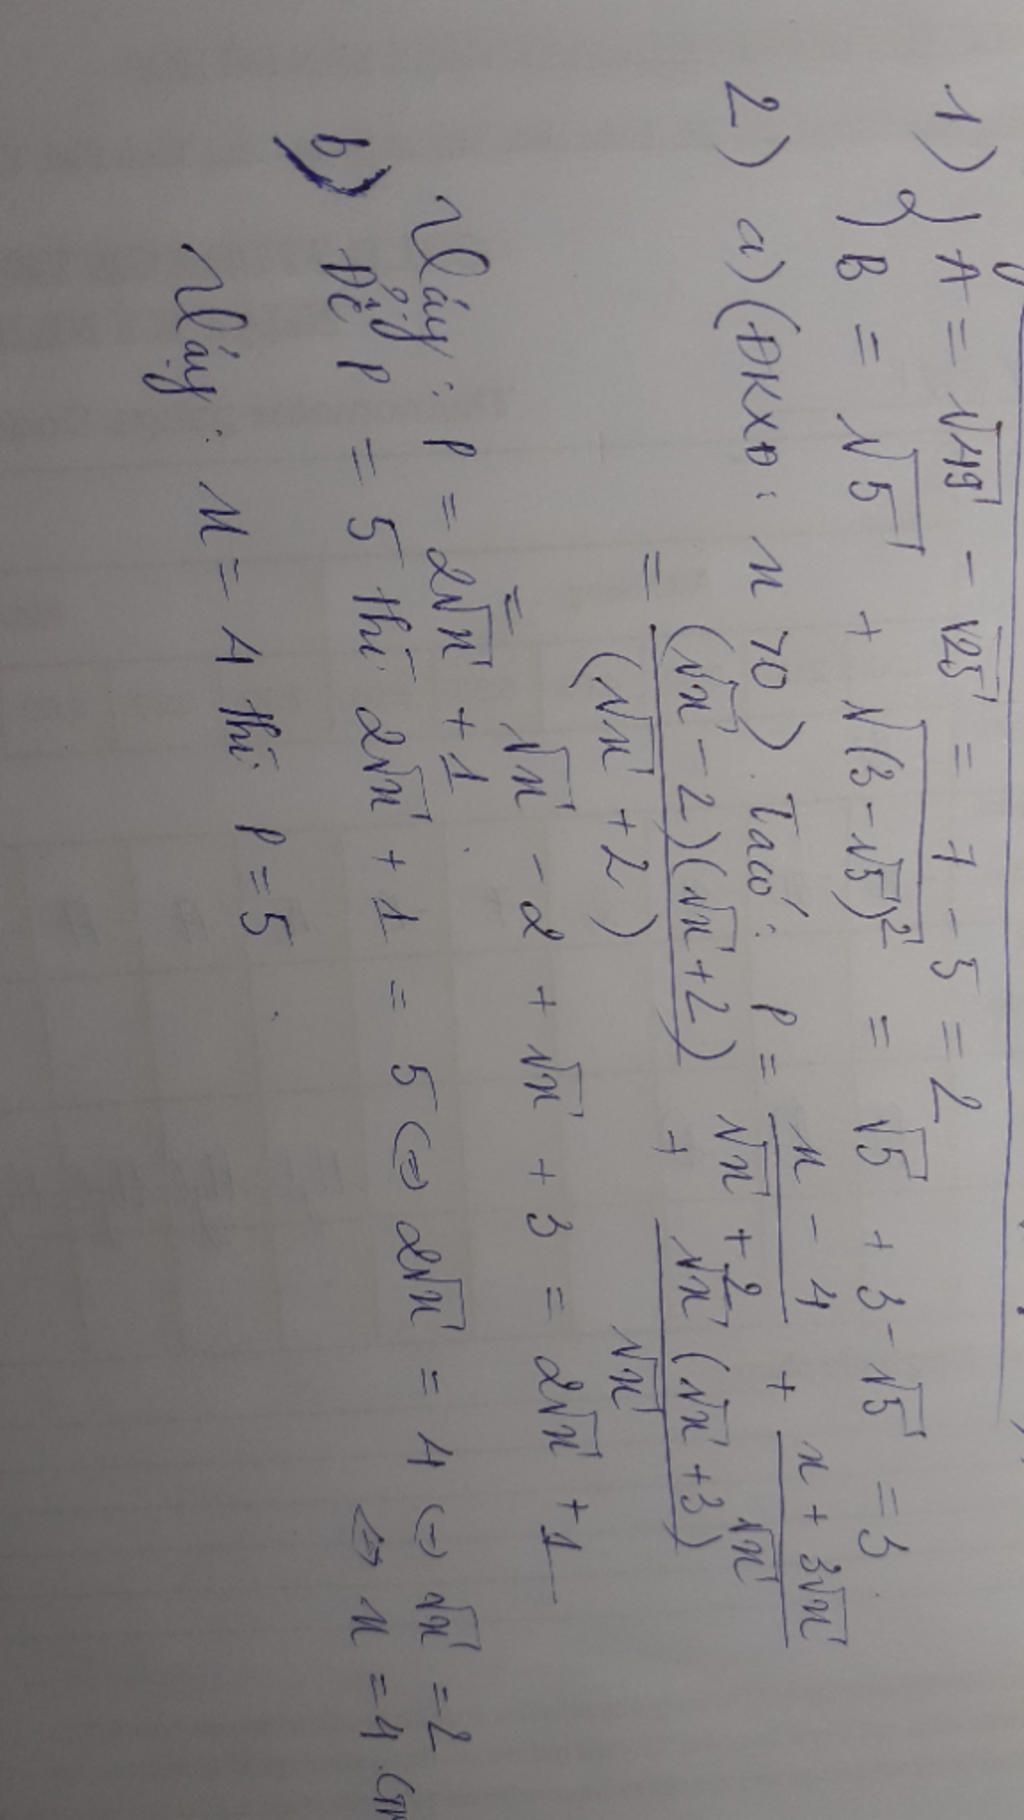 1) { A = √49 - √25 = 7 - 5 = 2
B = √5 + √(3-√5)² = √5 + 3 - √5 = 3
2) a) (ĐKXĐ: x > 0). Ta có: P = (x - 4)/(√x + 2) + (x + 3√x)/√x
= (√x - 2)(√x + 2)/(√x + 2) + √x(√x + 3)/√x
= √x - 2 + √x + 3 = 2√x + 1
Vậy: P = 2√x + 1.
b) Để P = 5 thì 2√x + 1 = 5 ⇔ 2√x = 4 ⇔ √x = 2
⇔ x = 4 (TM
Vậy: x = 4 thì P = 5.